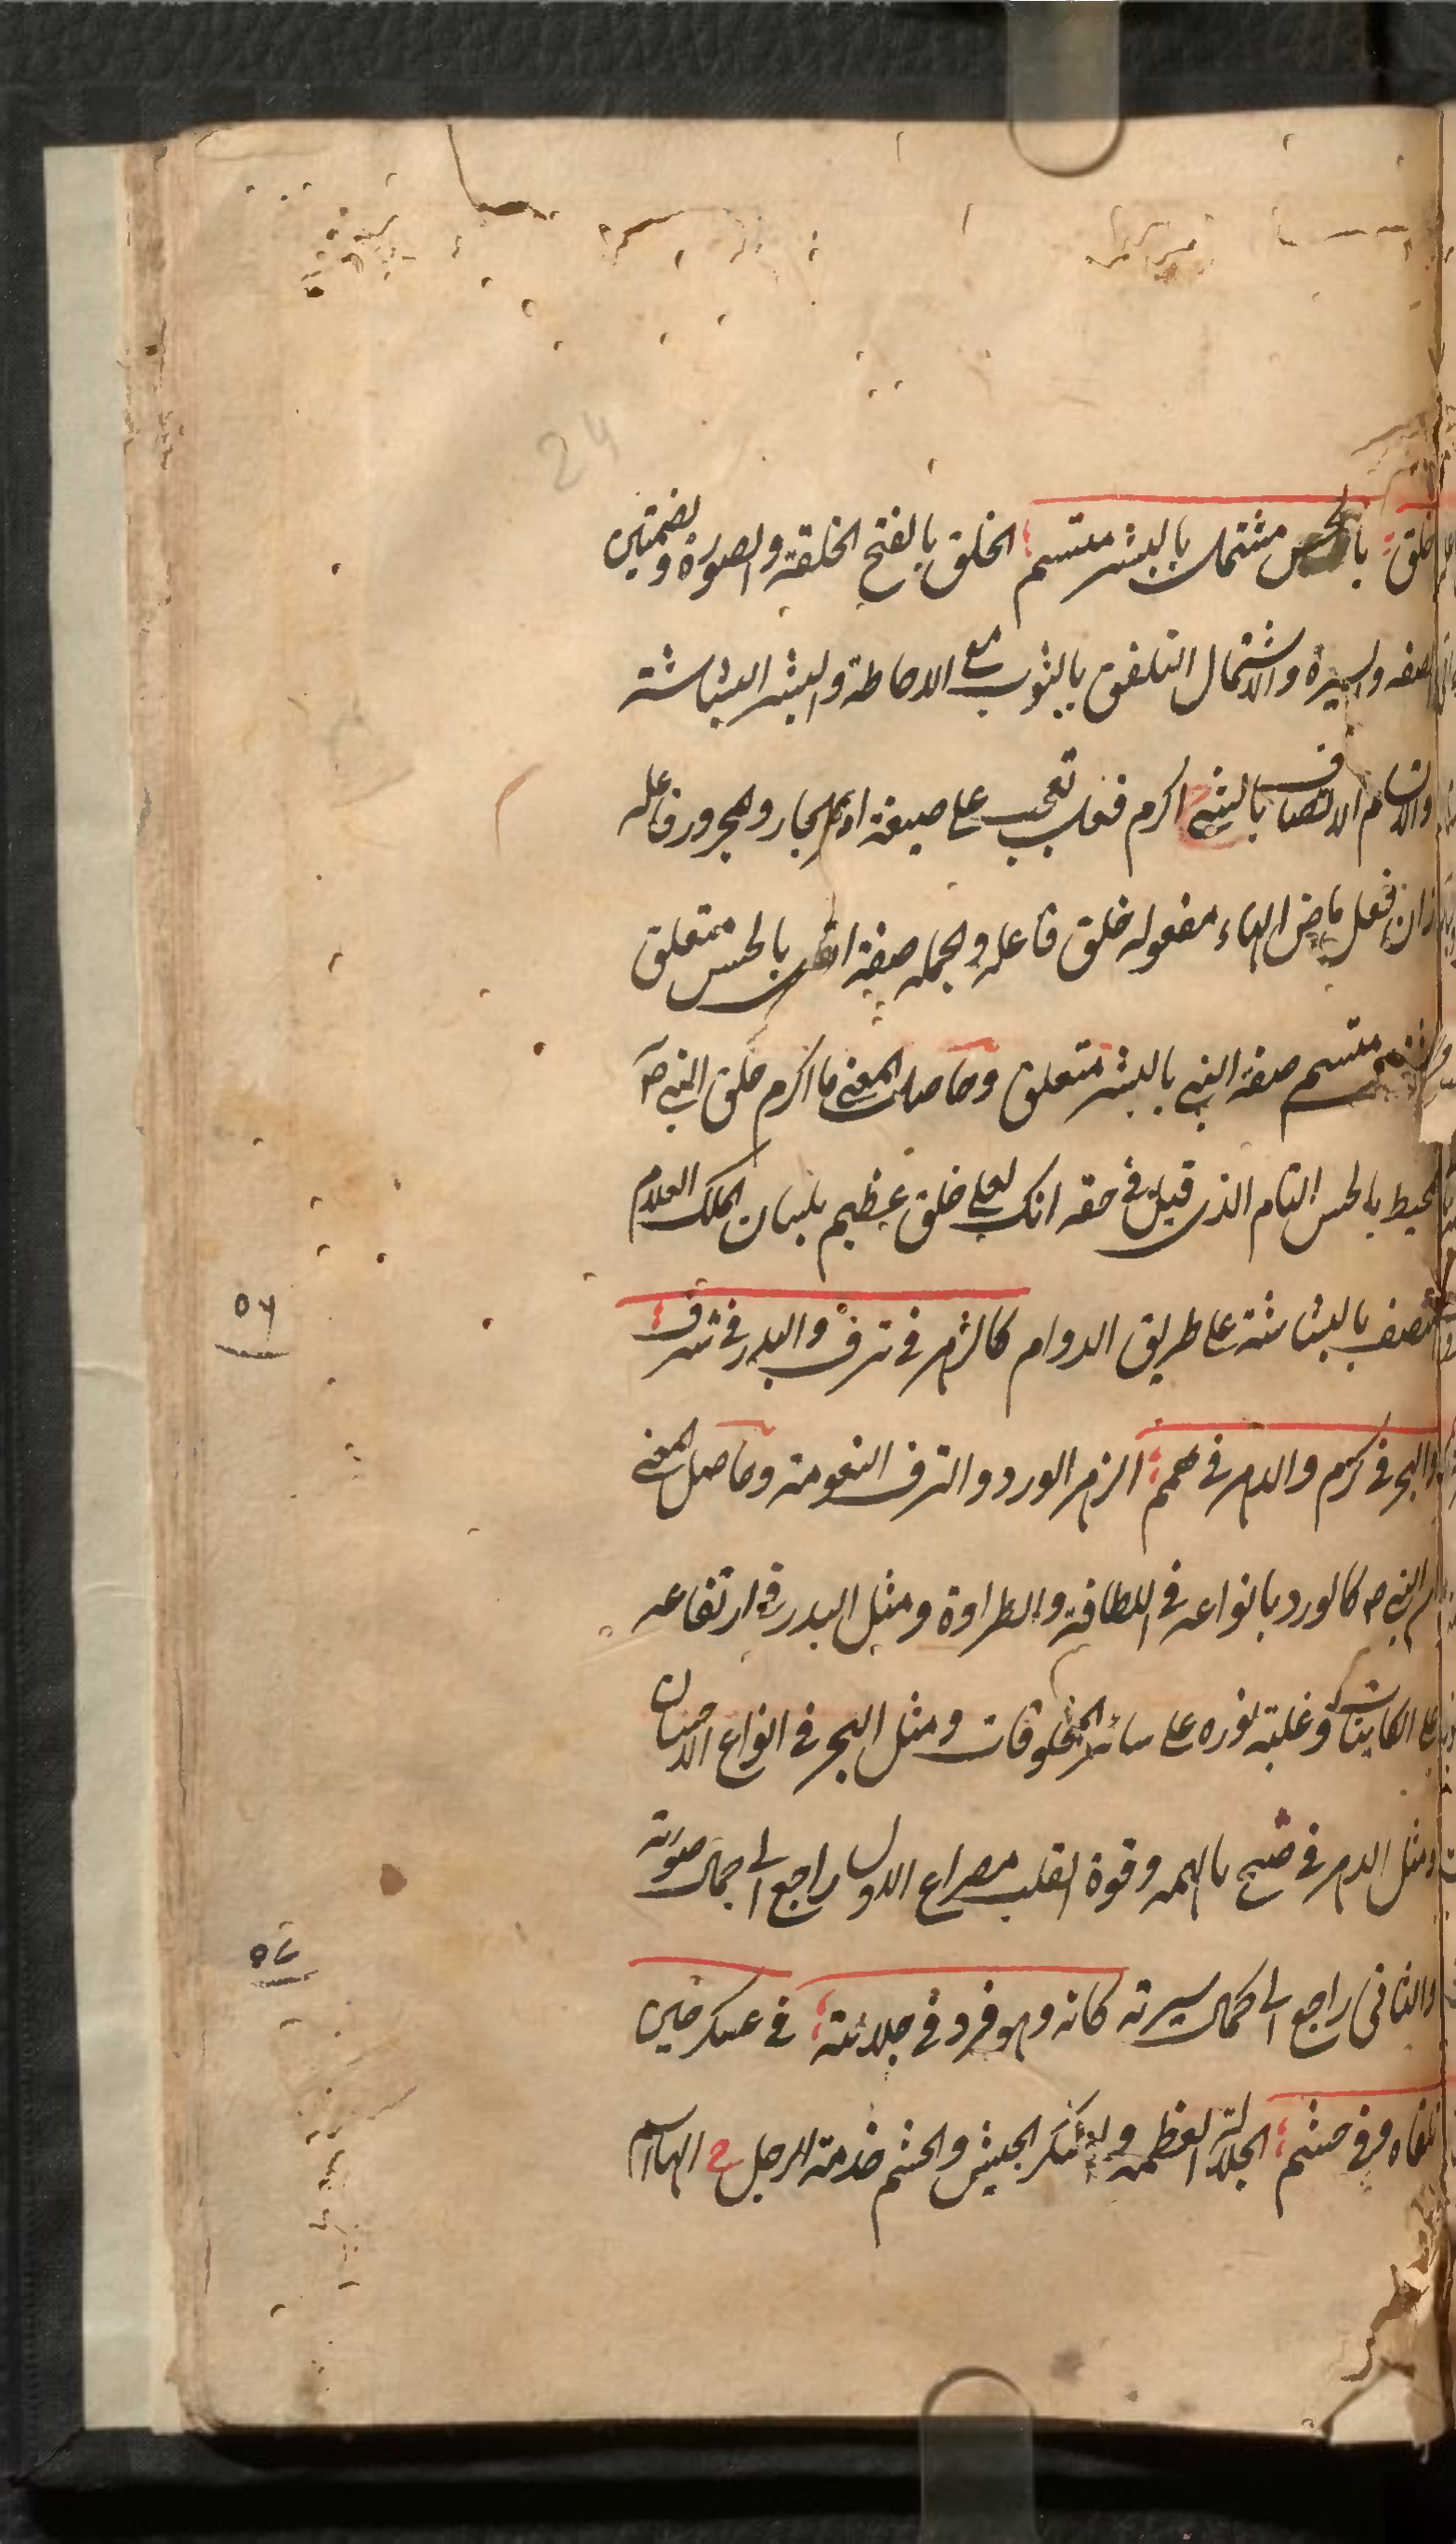 24
خلق؛ بالحسن مشتمل بالبشر متسم؛ الخلق بالفتح الخلقة والصورة وبضمتين
الصفه والسيرة والاشتمال التلفق بالثوب مع الاحاطة والبشر البشاشة
والاتسام الاتصاف بالشئ اكرم فعل تعجب على صيغة امر الجار والمجرور فاعله
زان فعل ماض الهاء مفعوله خلق فاعله والجمله صفة بالحسن متعلق
متسم صفة النبى بالبشر متعلق وحاصل المعنى ما اكرم خلق النبى صـ
محيط بالحسن التام الذى قيل فى حقه انك لعلى خلق عظيم بلسان الملك العلام
متصف بالبشاشة على طريق الدوام كالزهر فى ترف والبدر فى شرف؛
٥٦
والبحر فى كرم والدهر فى همم؛ الزهر الورد والترف النعومة وحاصل المعنى
النبى صـ كالورد بانواعه فى اللطافة والطراوة ومثل البدر فى ارتفاعه
على الكاينات وغلبة نوره على سائر المخلوقات ومثل البحر فى انواع الاحسان
ومثل الدهر فى بالهمه وقوة القلب مصراع الاول راجع الى جمال صورته
والثانى راجع الى كمال سيرته كانه وهو فرد فى جلالته؛ فى عسكر حين
٥٧
تلقاه وفى حشم؛ الجلالة العظمه والعسكر الجيش والحشم خدمة الرجل ح الهاء اسم